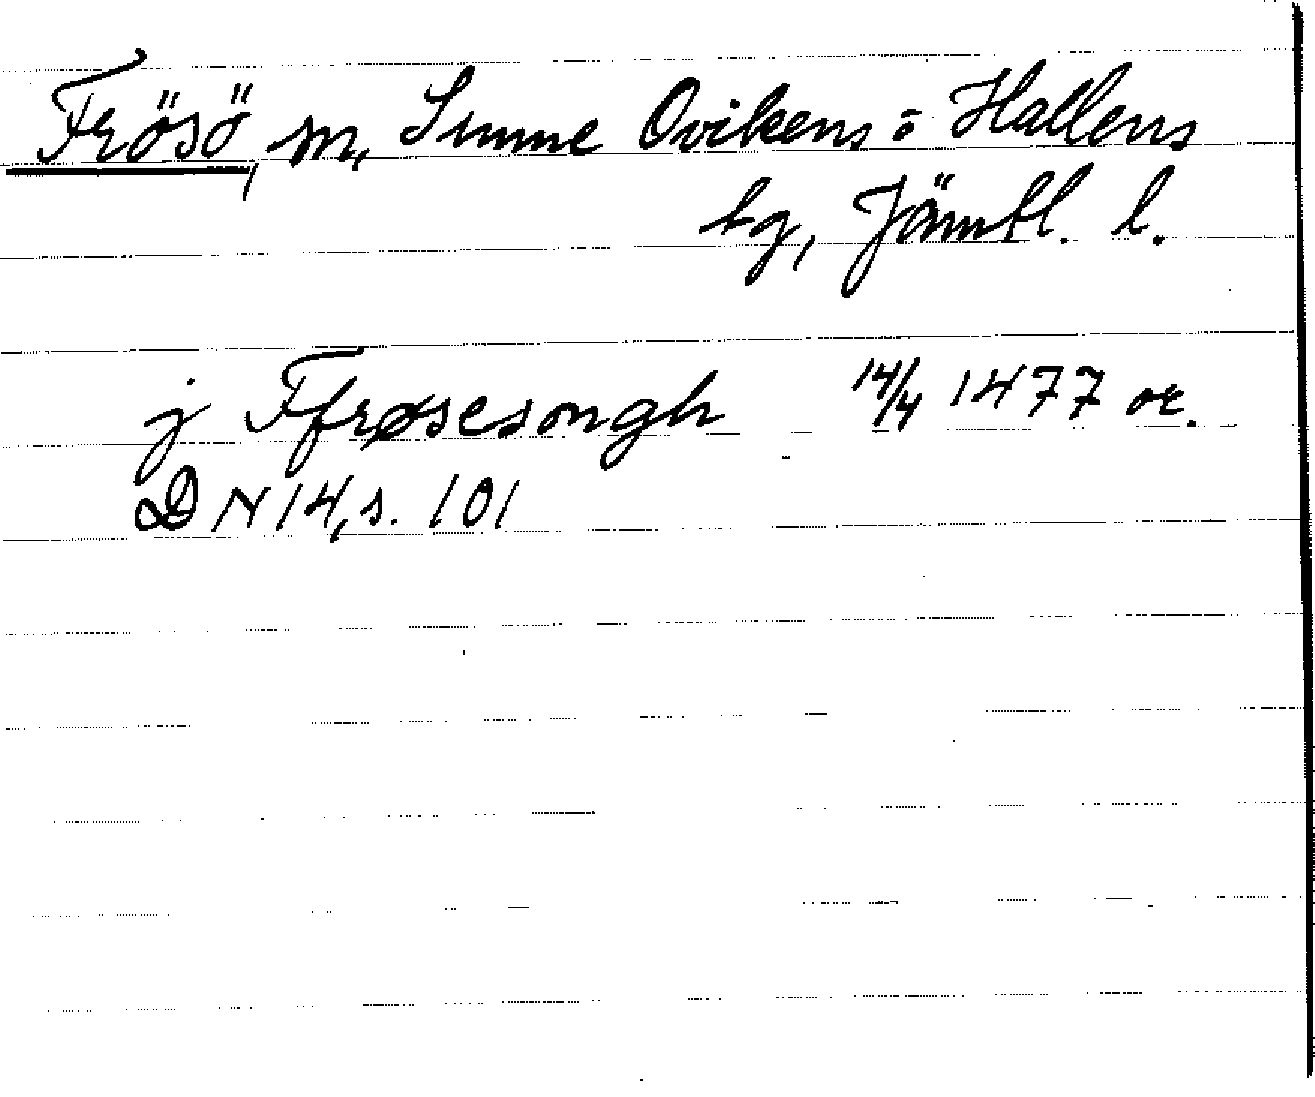 Frösö, sn, Sunne Ovikens o Hallens
tg, Jämtl. l.
j Ffrøsesongh 14/4 1477 or.
DN 14, s. 101